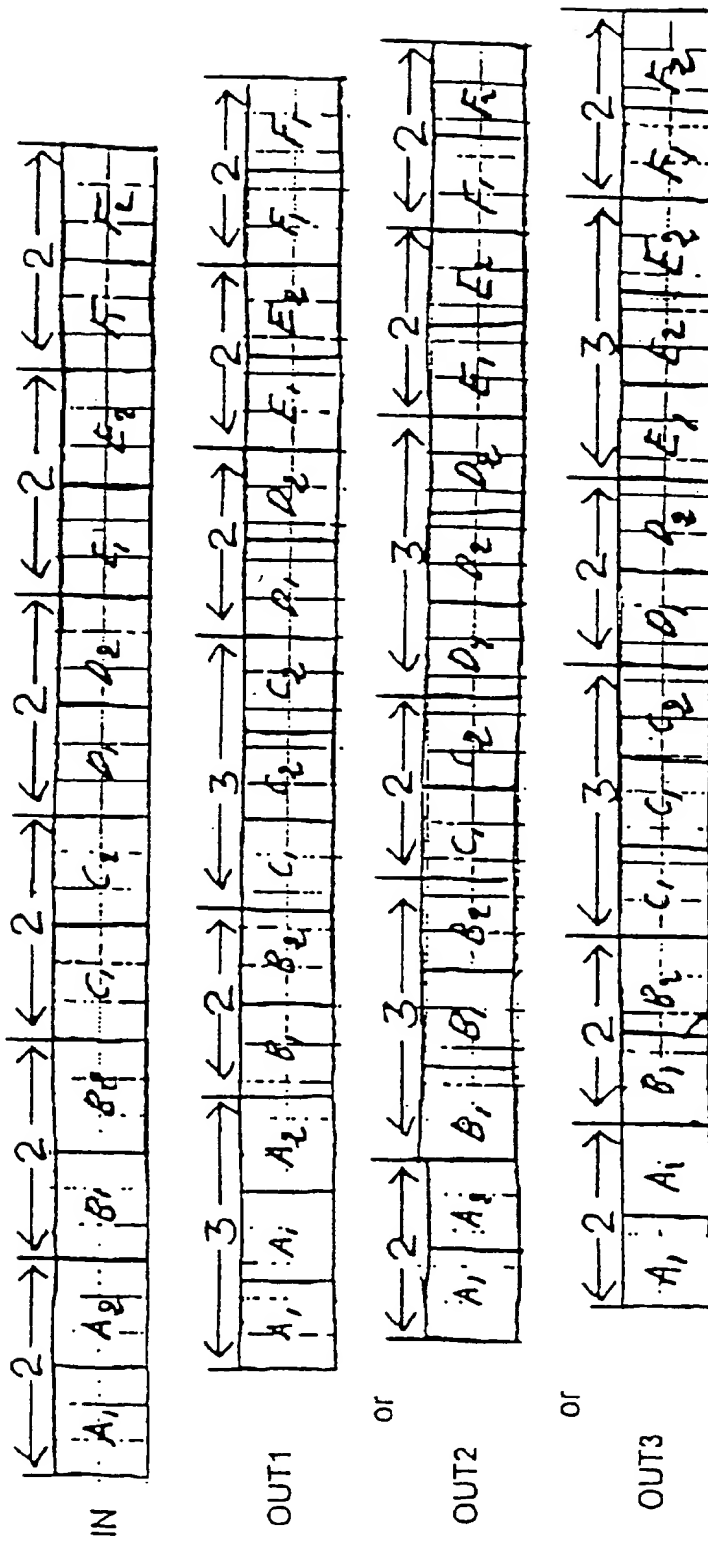 2 2 2 2 2 2
IN A₁ A₂ B₁ B₂ C₁ C₂ D₁ D₂ E₁ E₂ F₁ F₂
3 2 3 2 2 2
OUT1 A₁ A₁ A₂ B₁ B₂ C₁ C₂ C₂ D₁ D₂ E₁ E₂ F₁ F₁
or
2 3 2 3 2 2
OUT2 A₁ A₂ B₁ B₁ B₂ C₁ C₂ D₁ D₂ D₂ E₁ E₂ F₁ F₂
or
2 2 3 2 3 2
OUT3 A₁ A₁ B₁ B₂ C₁ C₁ C₂ D₁ D₂ E₁ E₂ E₂ F₁ F₂